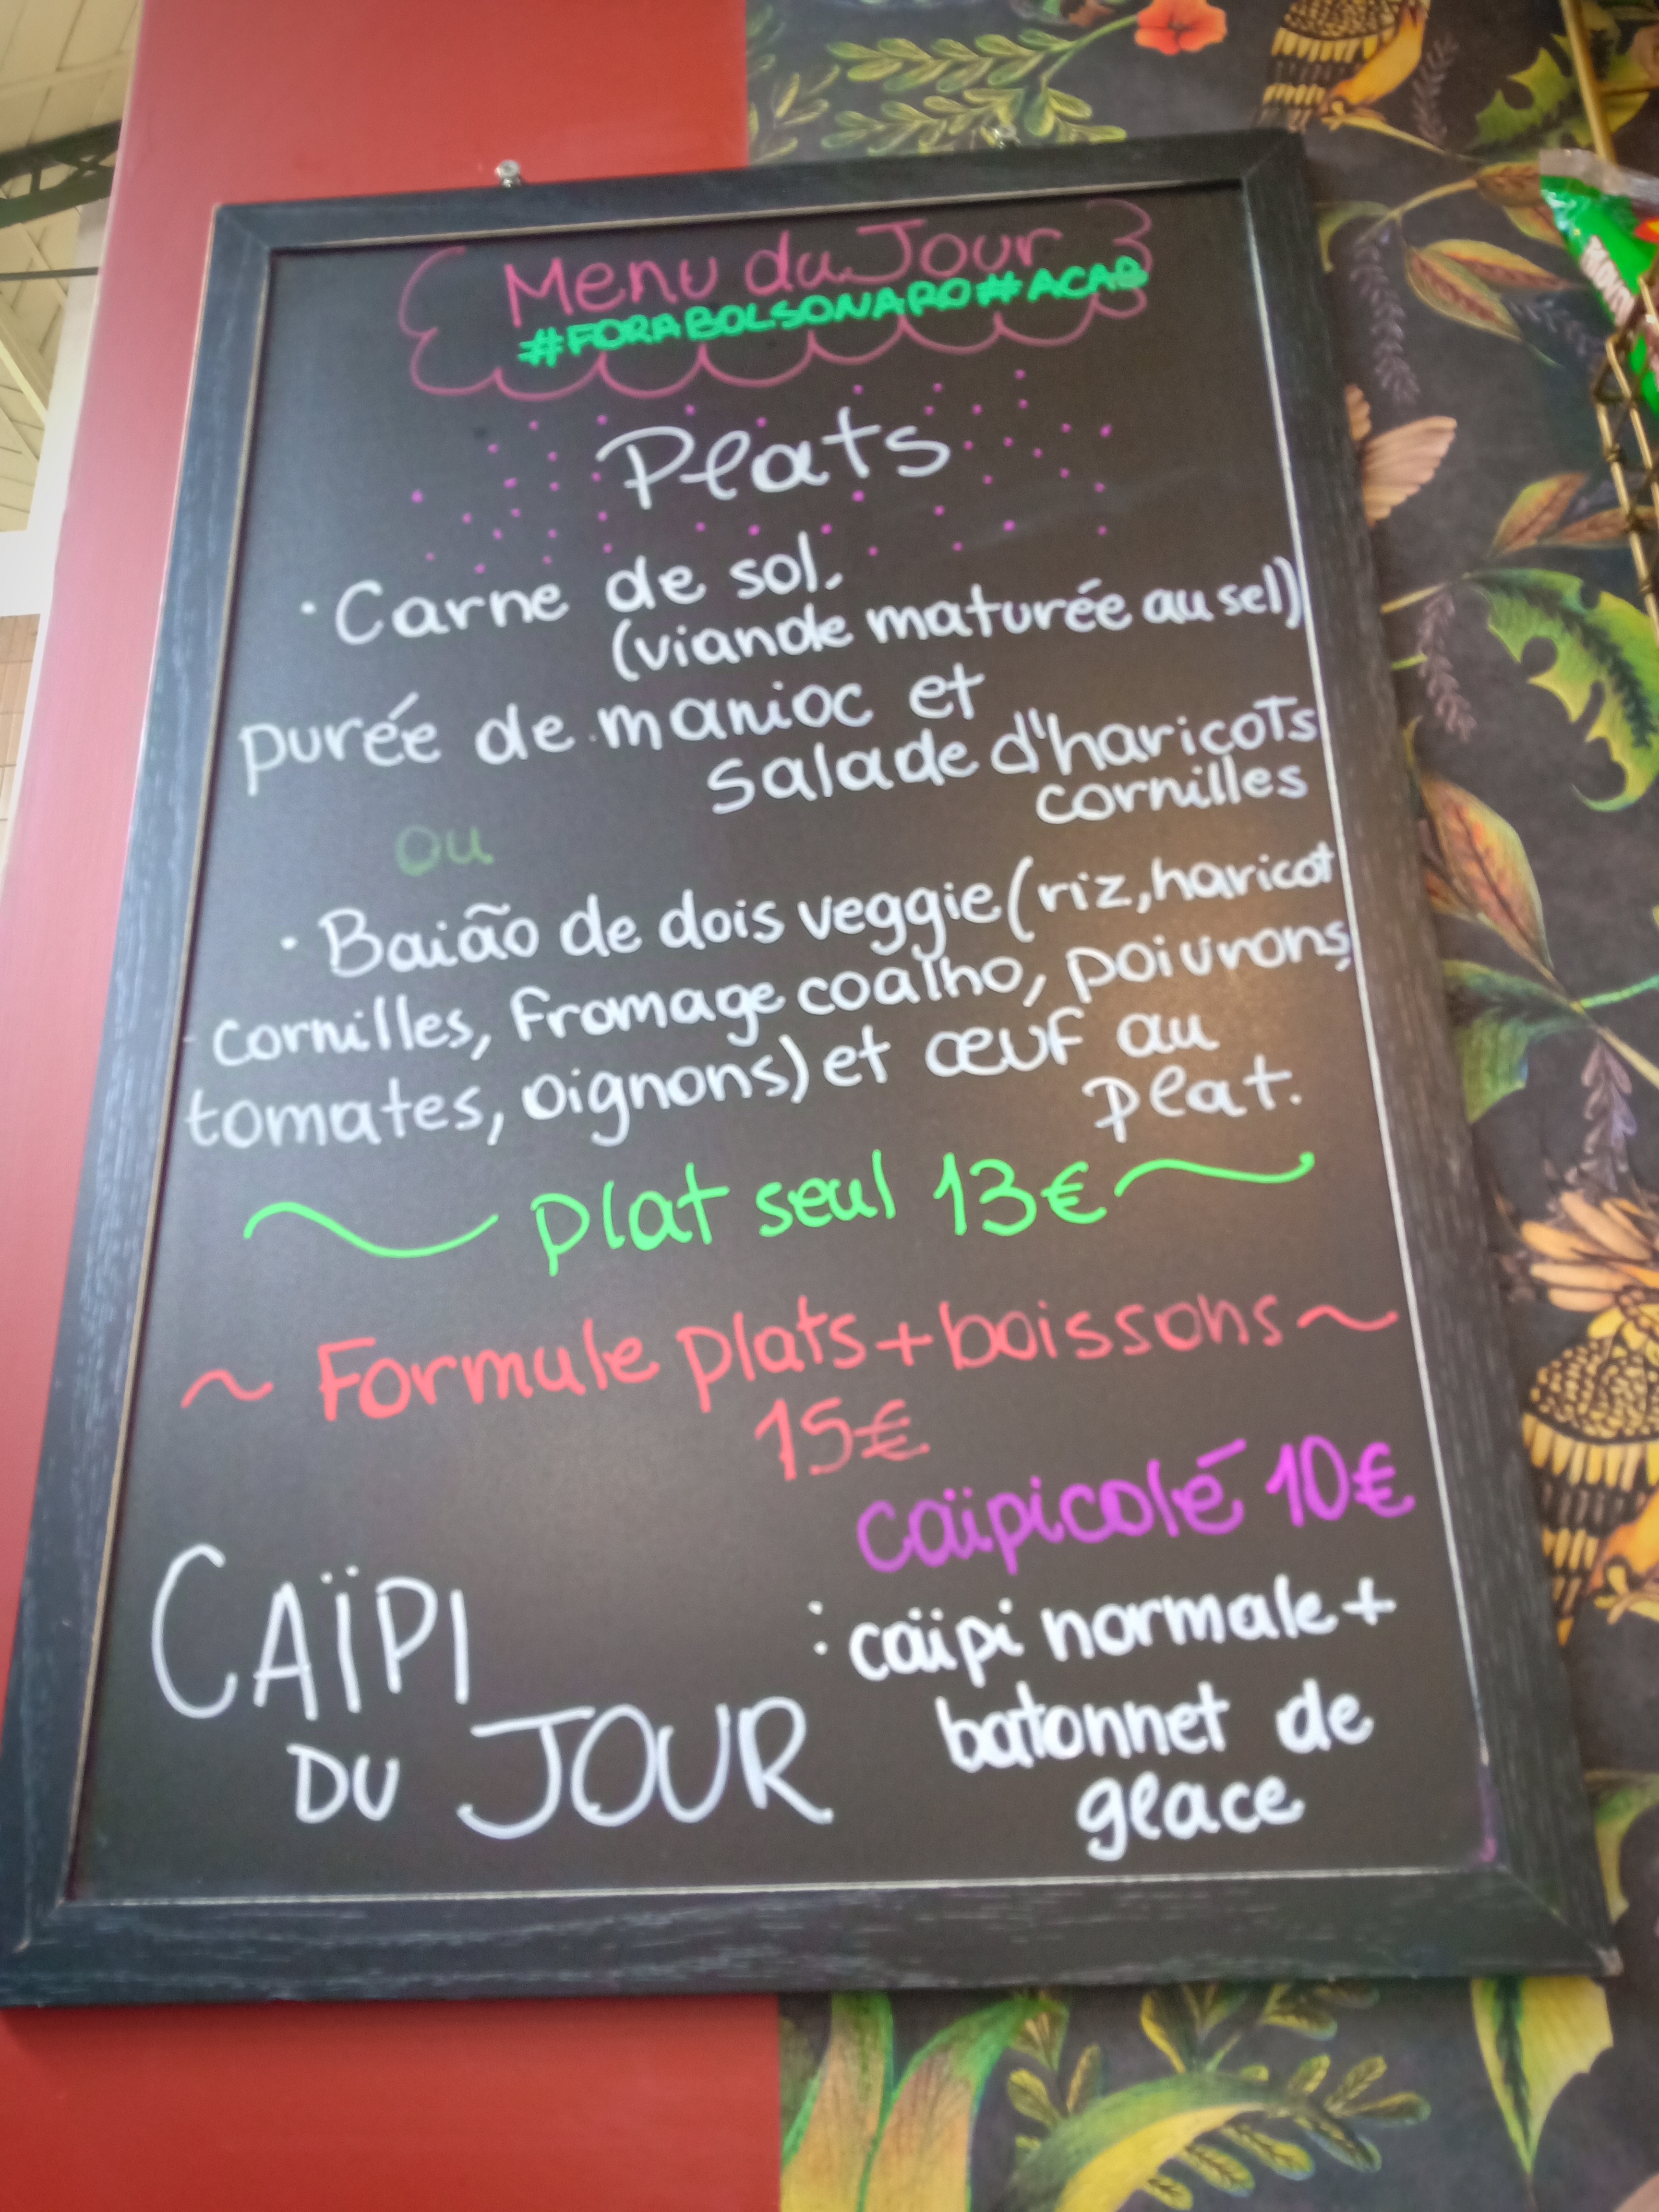 Menu du Jour
#FORABOLSONARO#ACAB
Plats
· Carne de sol.
(viande maturée au sel)
purée de manioc et
salade d'haricots
cornilles
ou
· Baião de dois veggie (riz, haricot
cornilles, fromage coalho, poivrons,
tomates, oignons) et œuf au
plat.
plat seul 13€
~ Formule plats + boissons ~
15€
caïpicolé 10€
CAÏPI
DU JOUR
: caïpi normale +
batonnet de
glace